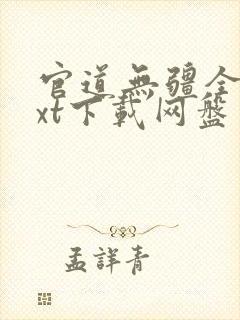 官道無疆全
xt下載网盤
孟詳青